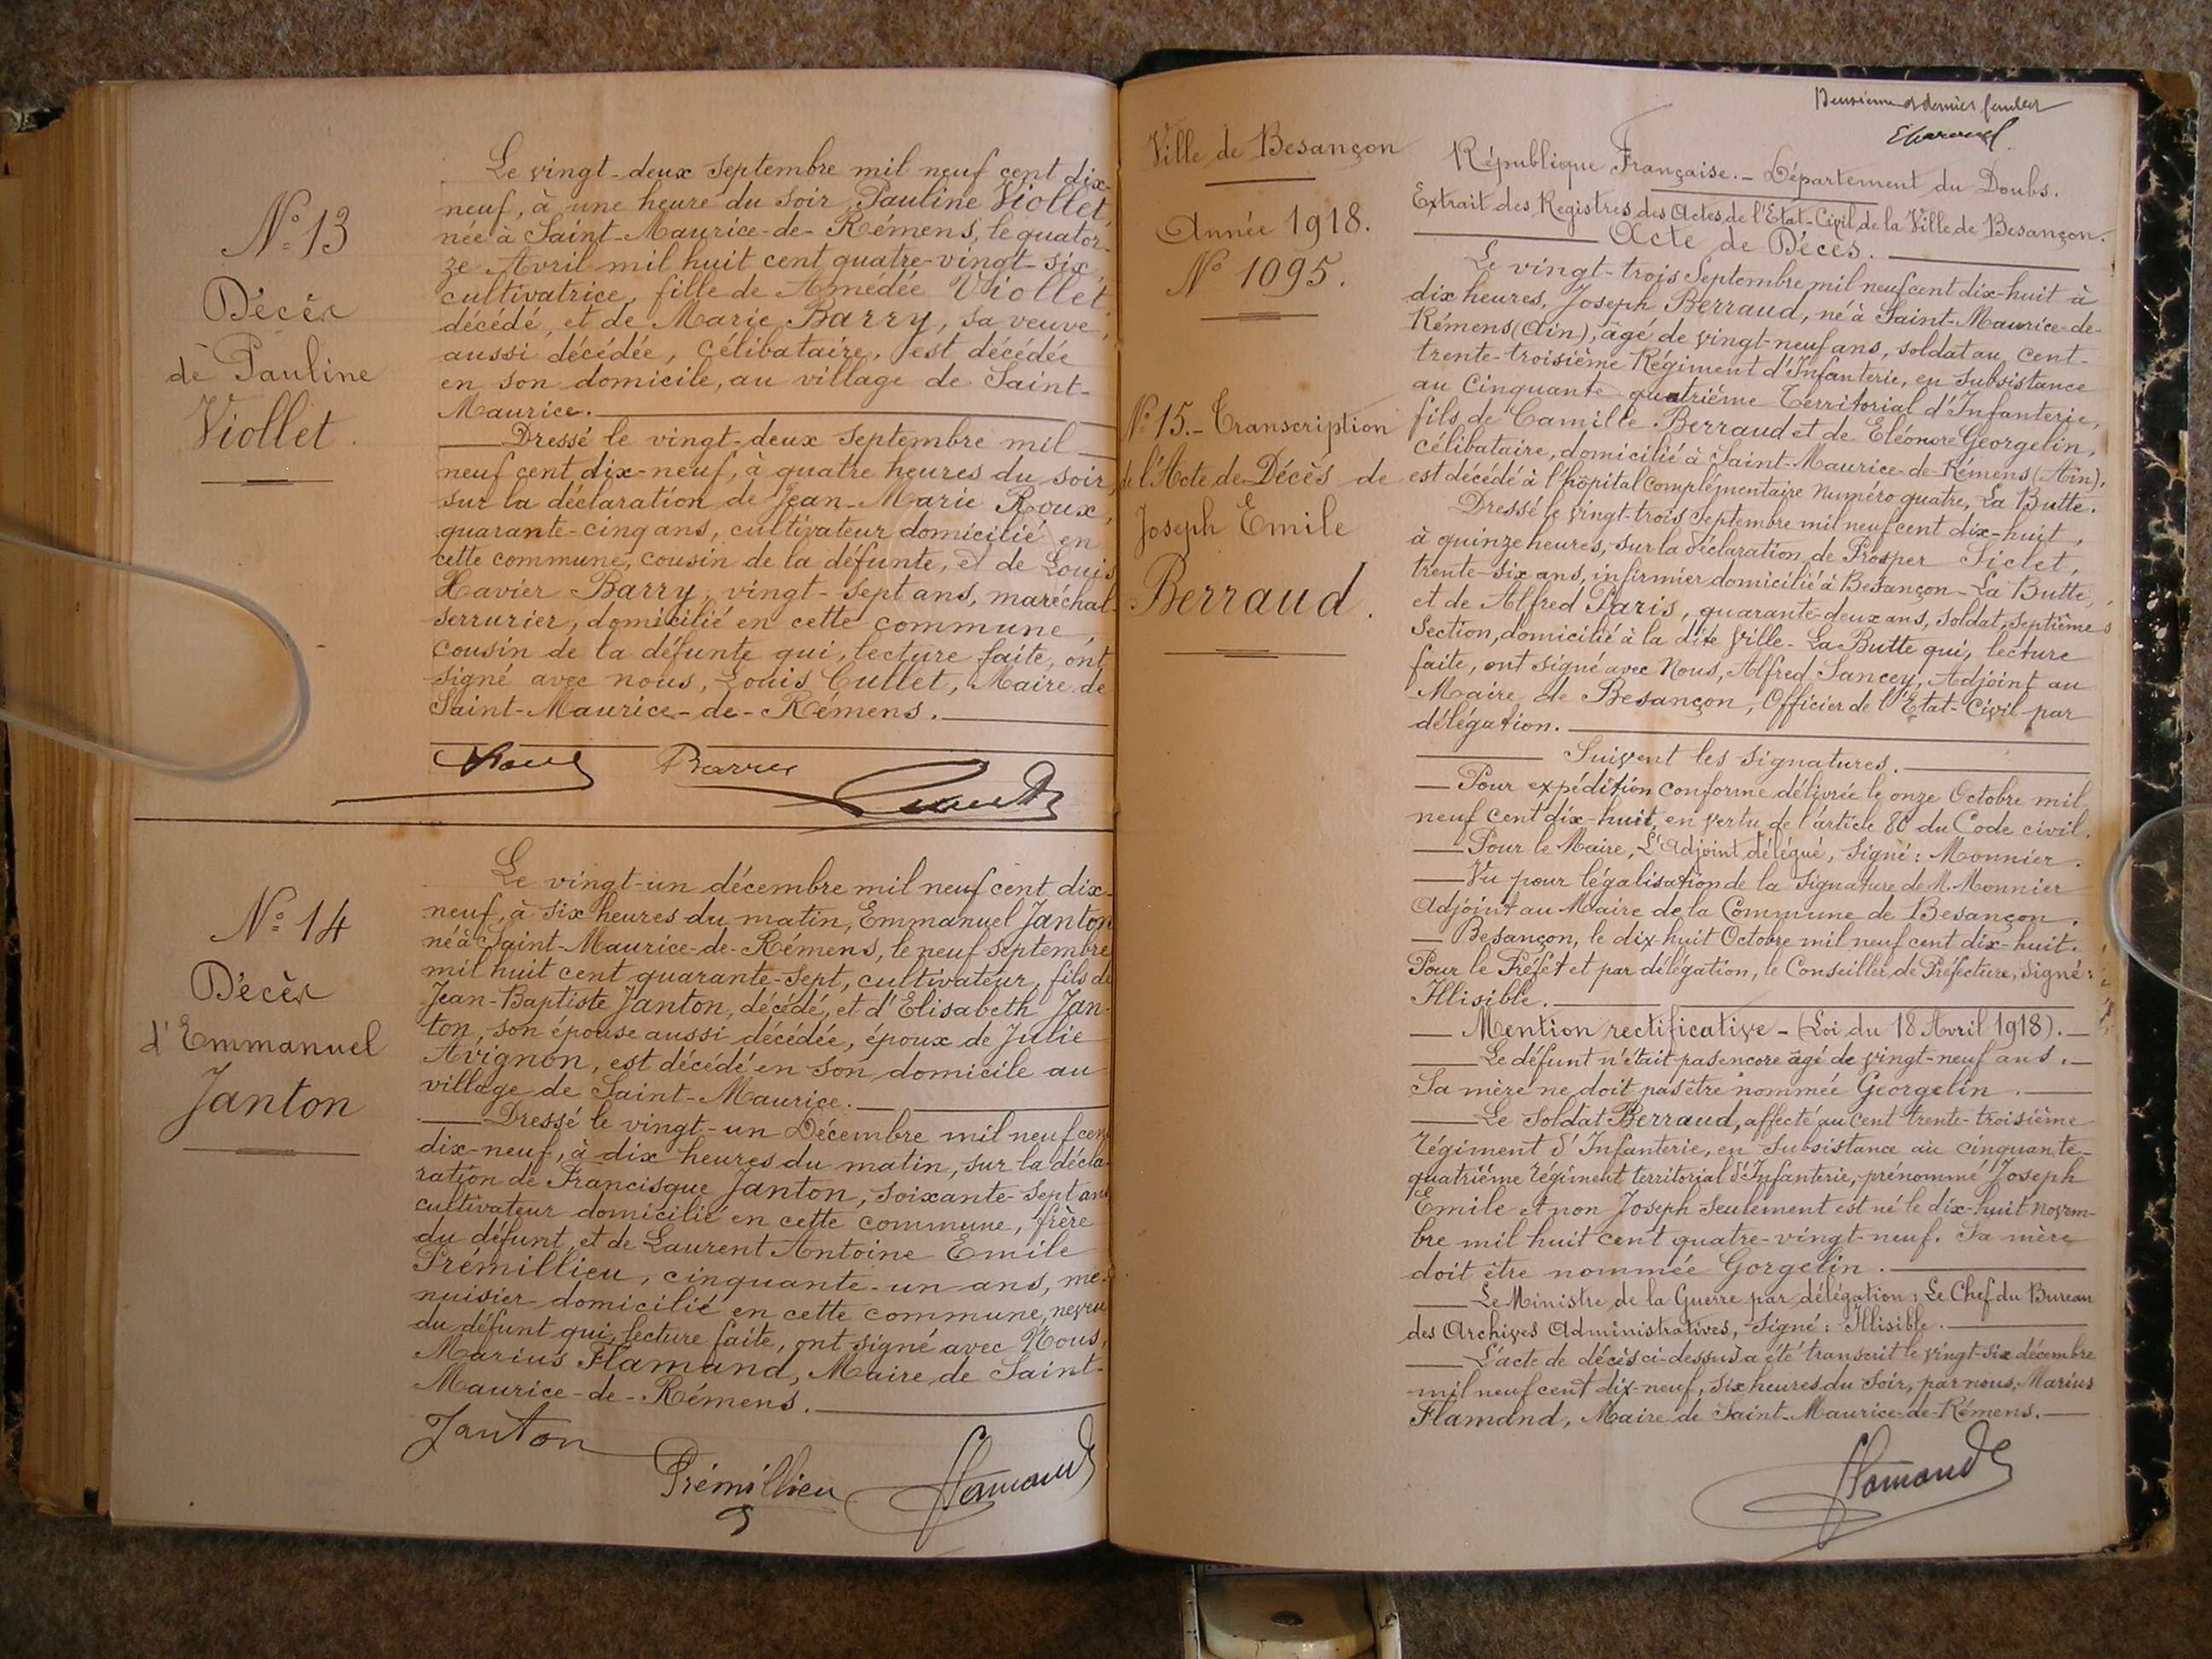 N° 13
Décès
de Pauline
Viollet.
Le vingt-deux septembre mil neuf cent dix-
neuf, à une heure du soir, Pauline Viollet,
née à Saint-Maurice-de-Rémens, le quator-
ze Avril mil huit cent quatre-vingt-six,
cultivatrice, fille de Amédée Viollet
décédé, et de Marie Barry, sa veuve,
aussi décédée, célibataire, est décédée
en son domicile, au village de Saint-
Maurice.
Dressé le vingt-deux septembre mil
neuf cent dix-neuf, à quatre heures du soir,
sur la déclaration de Jean-Marie Roux,
quarante-cinq ans, cultivateur domicilié en
cette commune, cousin de la défunte, et de Louis
Xavier Barry, vingt-sept ans, maréchal-
serrurier, domicilié en cette commune,
cousin de la défunte qui, lecture faite, ont
signé avec nous, Louis Cullet, Maire de
Saint-Maurice-de-Rémens.
N° 14
Décès
d'Emmanuel
Janton
Le vingt-un décembre mil neuf cent dix-
neuf, à six heures du matin, Emmanuel Janton
né à Saint-Maurice-de-Rémens, le neuf Septembre
mil huit cent quarante-sept, cultivateur, fils de
Jean-Baptiste Janton, décédé, et d'Elisabeth Jan-
ton, son épouse aussi décédée, époux de Julie
Avignon, est décédé en son domicile au
village de Saint-Maurice.
Dressé le vingt-un Décembre mil neuf cent
dix-neuf, à dix heures du matin, sur la décla-
ration de Francisque Janton, soixante-sept ans
cultivateur domicilié en cette commune, frère
du défunt, et de Laurent Antoine Emile
Prémillieu, cinquante-un ans, me-
nuisier domicilié en cette commune, neveu
du défunt qui, lecture faite, ont signé avec Nous,
Marius Flamand, Maire de Saint-
Maurice-de-Rémens.
Janton
Prémillieu
Flamand
Ville de Besançon
Année 1918.
N° 1095.
N° 15.- Transcription
de l'Acte de Décès de
Joseph Emile
Berraud.
République Française.- Département du Doubs.
Extrait des Registres des Actes de l'Etat-Civil de la Ville de Besançon.
Acte de Décès.
Le vingt-trois Septembre mil neuf cent dix-huit à
dix heures, Joseph Berraud, né à Saint-Maurice-de-
Rémens (Ain), âgé de vingt-neuf ans, soldat au cent-
trente-troisième Régiment d'Infanterie, en subsistance
au Cinquante-quatrième Territorial d'Infanterie,
fils de Camille Berraud et de Eléonore Georgelin,
célibataire, domicilié à Saint-Maurice-de-Rémens (Ain),
est décédé à l'hôpital complémentaire Numéro quatre, La Butte.
Dressé le vingt-trois Septembre mil neuf cent dix-huit,
à quinze heures, sur la déclaration de Prosper Siclet,
trente-six ans, infirmier domicilié à Besançon-La Butte,
et de Alfred Paris, quarante-deux ans, soldat, septième
Section, domicilié à la dite Ville-La Butte qui, lecture
faite, ont signé avec Nous, Alfred Sancey, Adjoint au
Maire de Besançon, Officier de l'Etat-Civil par
délégation.
Suivent les signatures.
Pour expédition conforme délivrée le onze Octobre mil
neuf cent dix-huit, en vertu de l'article 80 du Code civil.
Pour le Maire, L'Adjoint délégué, signé: Monnier.
Vu pour légalisation de la signature de M. Monnier
Adjoint au Maire de la Commune de Besançon.
Besançon, le dix-huit Octobre mil neuf cent dix-huit.
Pour le Préfet et par délégation, le Conseiller de Préfecture, signé:
Illisible.
Mention rectificative - (Loi du 18 Avril 1918).
Le défunt n'était pas encore âgé de vingt-neuf ans.
Sa mère ne doit pas être nommée Georgelin.
Le Soldat Berraud, affecté au Cent trente-troisième
Régiment d'Infanterie, en subsistance au cinquante-
quatrième régiment territorial d'Infanterie,-prénommé Joseph
Emile et non Joseph seulement est né le dix-huit novem-
bre mil huit cent quatre-vingt-neuf. Sa mère
doit être nommée Gorgelin.
Le Ministre de la Guerre par délégation: Le Chef du Bureau
des Archives Administratives, Signé: Illisible.
L'acte de décès ci-dessus a été transcrit le vingt-six décembre
mil neuf cent dix-neuf, six heures du soir, par nous, Marius
Flamand, Maire de Saint-Maurice-de-Rémens.
Flamand